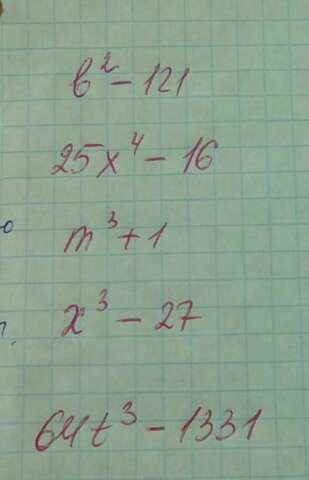 b² - 121
25x⁴ - 16
m³ + 1
x³ - 27
64t³ - 1331